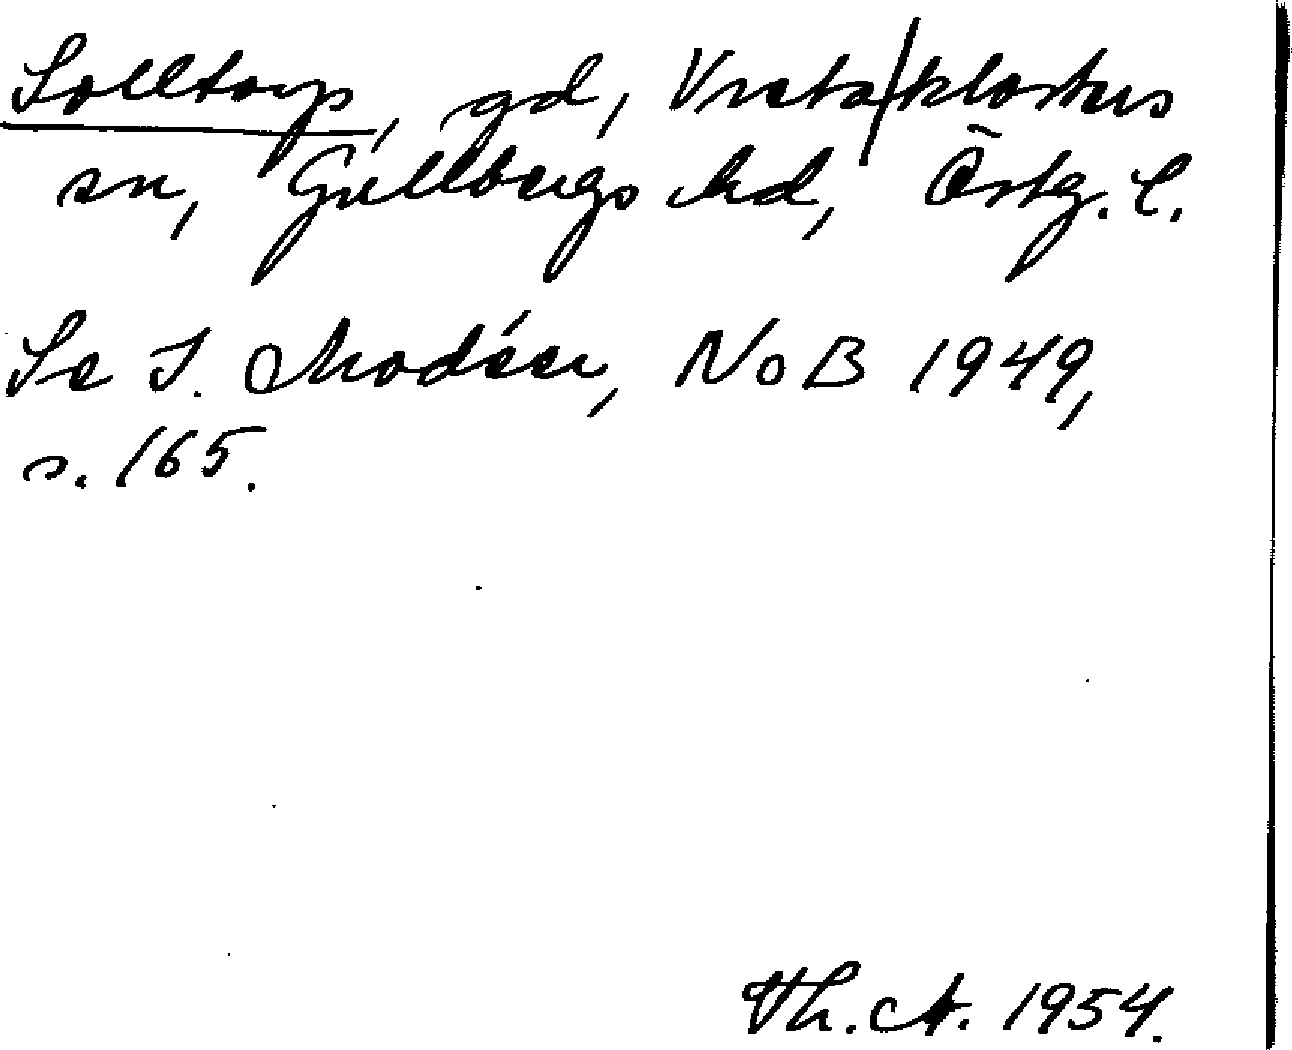 Solltorp, gd, Vreta/klosters
sn, Gullbergs hd, Östg. l.
Se I. Modéer, NoB 1949,
s. 165.
Th. A. 1954.